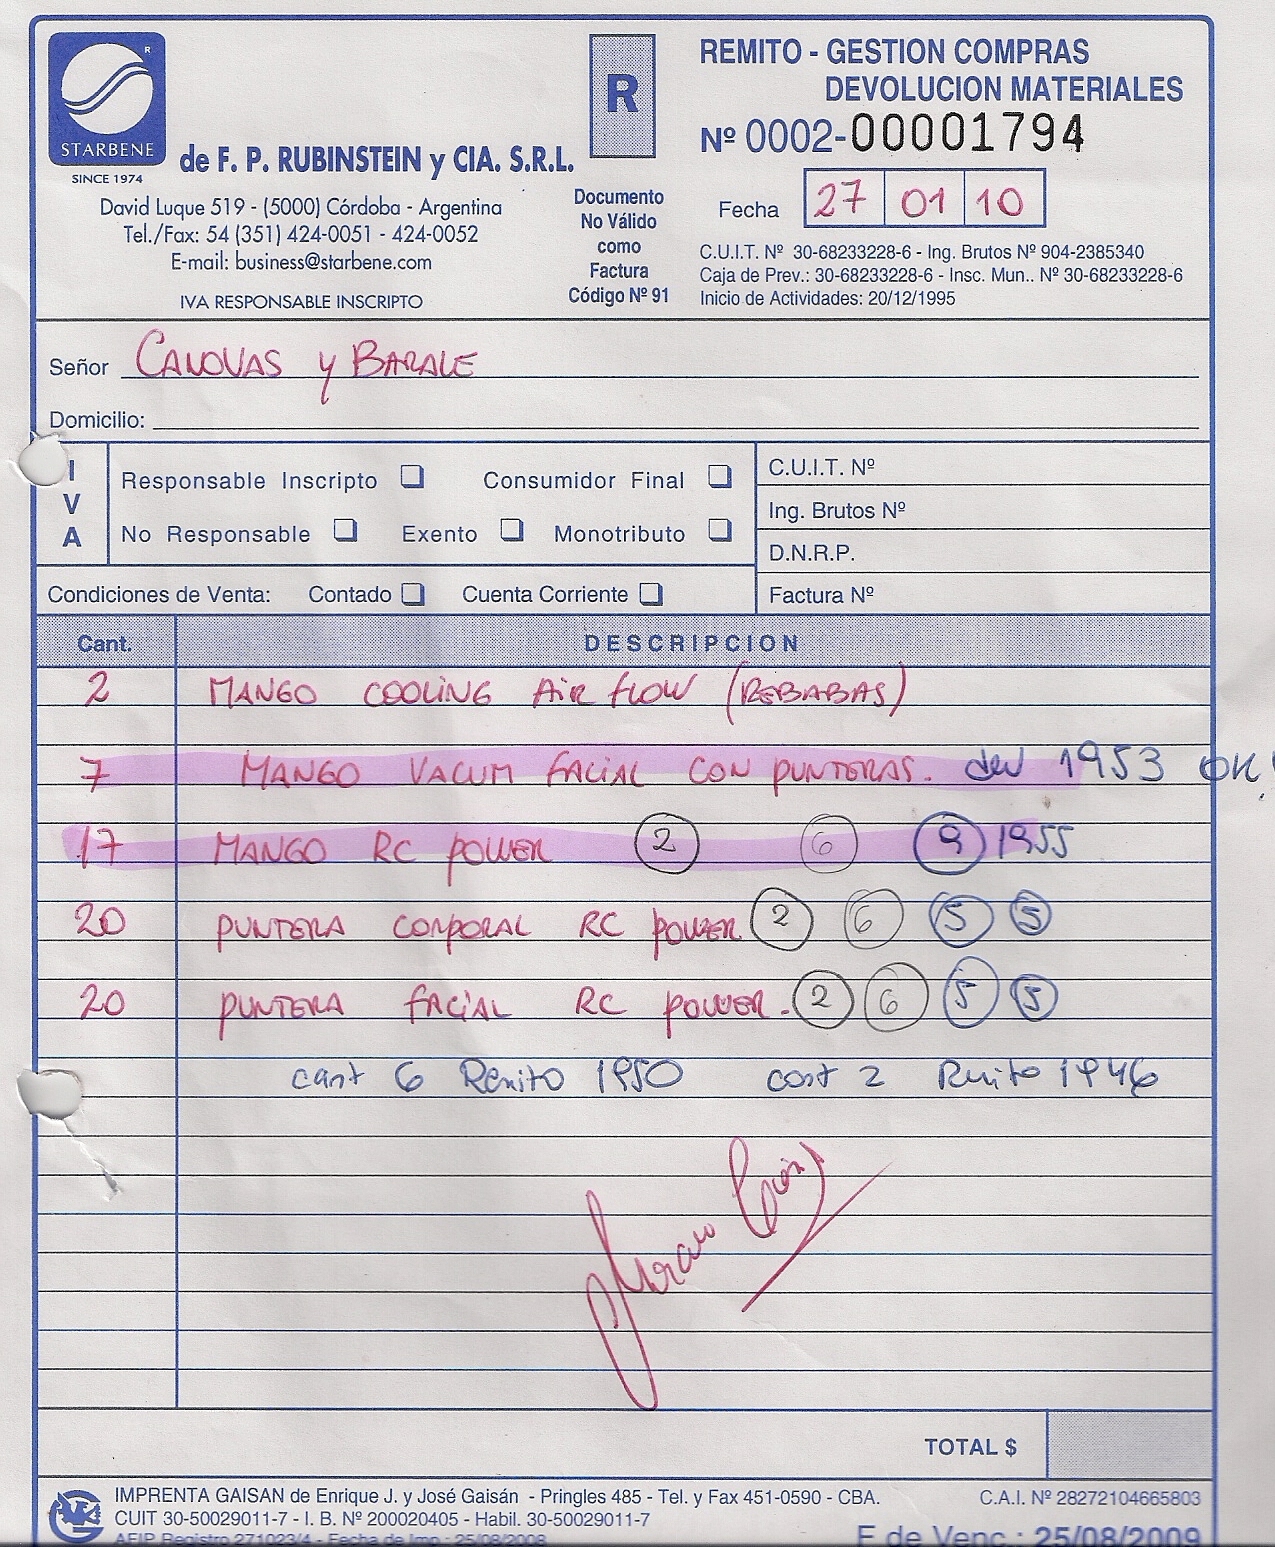 REMITO - GESTION COMPRAS
DEVOLUCION MATERIALES
R
STARBENE
SINCE 1974
de F. P. RUBINSTEIN y CIA. S.R.L.
Nº 0002-00001794
David Luque 519 - (5000) Córdoba - Argentina
Tel./Fax: 54 (351) 424-0051 - 424-0052
E-mail: business@starbene.com
IVA RESPONSABLE INSCRIPTO
Documento
No Válido
como
Factura
Código Nº 91
Fecha 27 01 10
C.U.I.T. Nº 30-68233228-6 - Ing. Brutos Nº 904-2385340
Caja de Prev.: 30-68233228-6 - Insc. Mun.. Nº 30-68233228-6
Inicio de Actividades: 20/12/1995
Señor CANOVAS y BARALE
Domicilio:
IVA
Responsable Inscripto Consumidor Final
No Responsable Exento Monotributo
C.U.I.T. Nº
Ing. Brutos Nº
D.N.R.P.
Condiciones de Venta: Contado Cuenta Corriente
Factura Nº
Cant. DESCRIPCION
2 MANGO COOLING AIR FLOW (REBABAS)
7 MANGO VACUM FACIAL CON PUNTERAS. dev 1953 OK!
17 MANGO RC POWER 2 6 9 1955
20 PUNTERA CORPORAL RC POWER 2 6 5 5
20 PUNTERA FACIAL RC POWER. 2 6 5 5
cant 6 Remito 1950 cant 2 Remito 1946
TOTAL $
IMPRENTA GAISAN de Enrique J. y José Gaisán - Pringles 485 - Tel. y Fax 451-0590 - CBA.
CUIT 30-50029011-7 - I. B. Nº 200020405 - Habil. 30-50029011-7
AFIP Registro 271023/4 - Fecha de Imp.: 25/08/2008
C.A.I. Nº 28272104665803
F. de Venc.: 25/08/2009